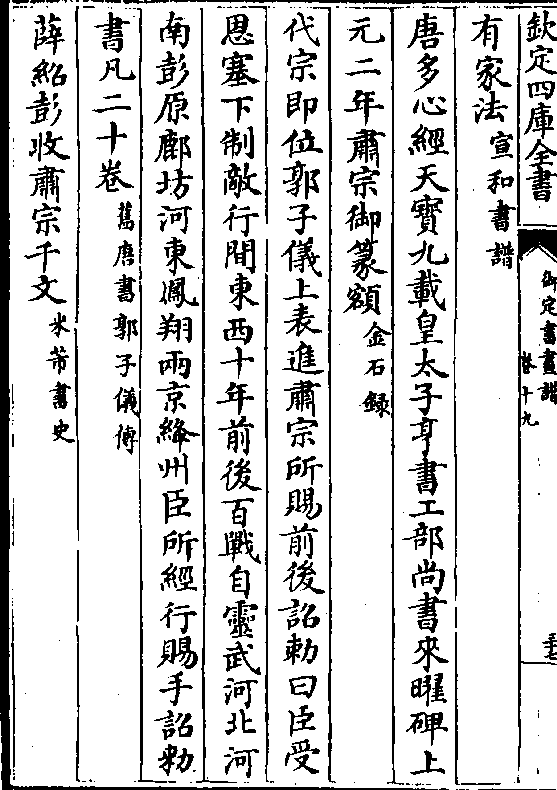 欽定四庫全書
御定書畫譜
卷十九
三十七
有家法宣和書譜
唐多心經天寶九載皇太子亨書工部尚書來曜碑上
元二年肅宗御篆額金石録
代宗即位郭子儀上表進肅宗所賜前後詔勅曰臣受
恩塞下制敵行間東西十年前後百戰自靈武河北河
南彭原鄜坊河東鳳翔兩京絳州臣所經行賜手詔勅
書凡二十卷舊唐書郭子儀傳
薛紹彭收肅宗千文米芾書史